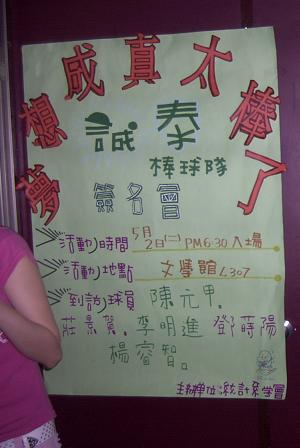 夢想成真太棒了
誠泰
棒球隊
簽名會
活動時間 5月2日(二) PM6:30入場
活動地點 文學館L307
到訪球員 陳元甲.
莊景賀.李明進 鄧蒔陽
楊睿智.
主辦單位:統計系學會